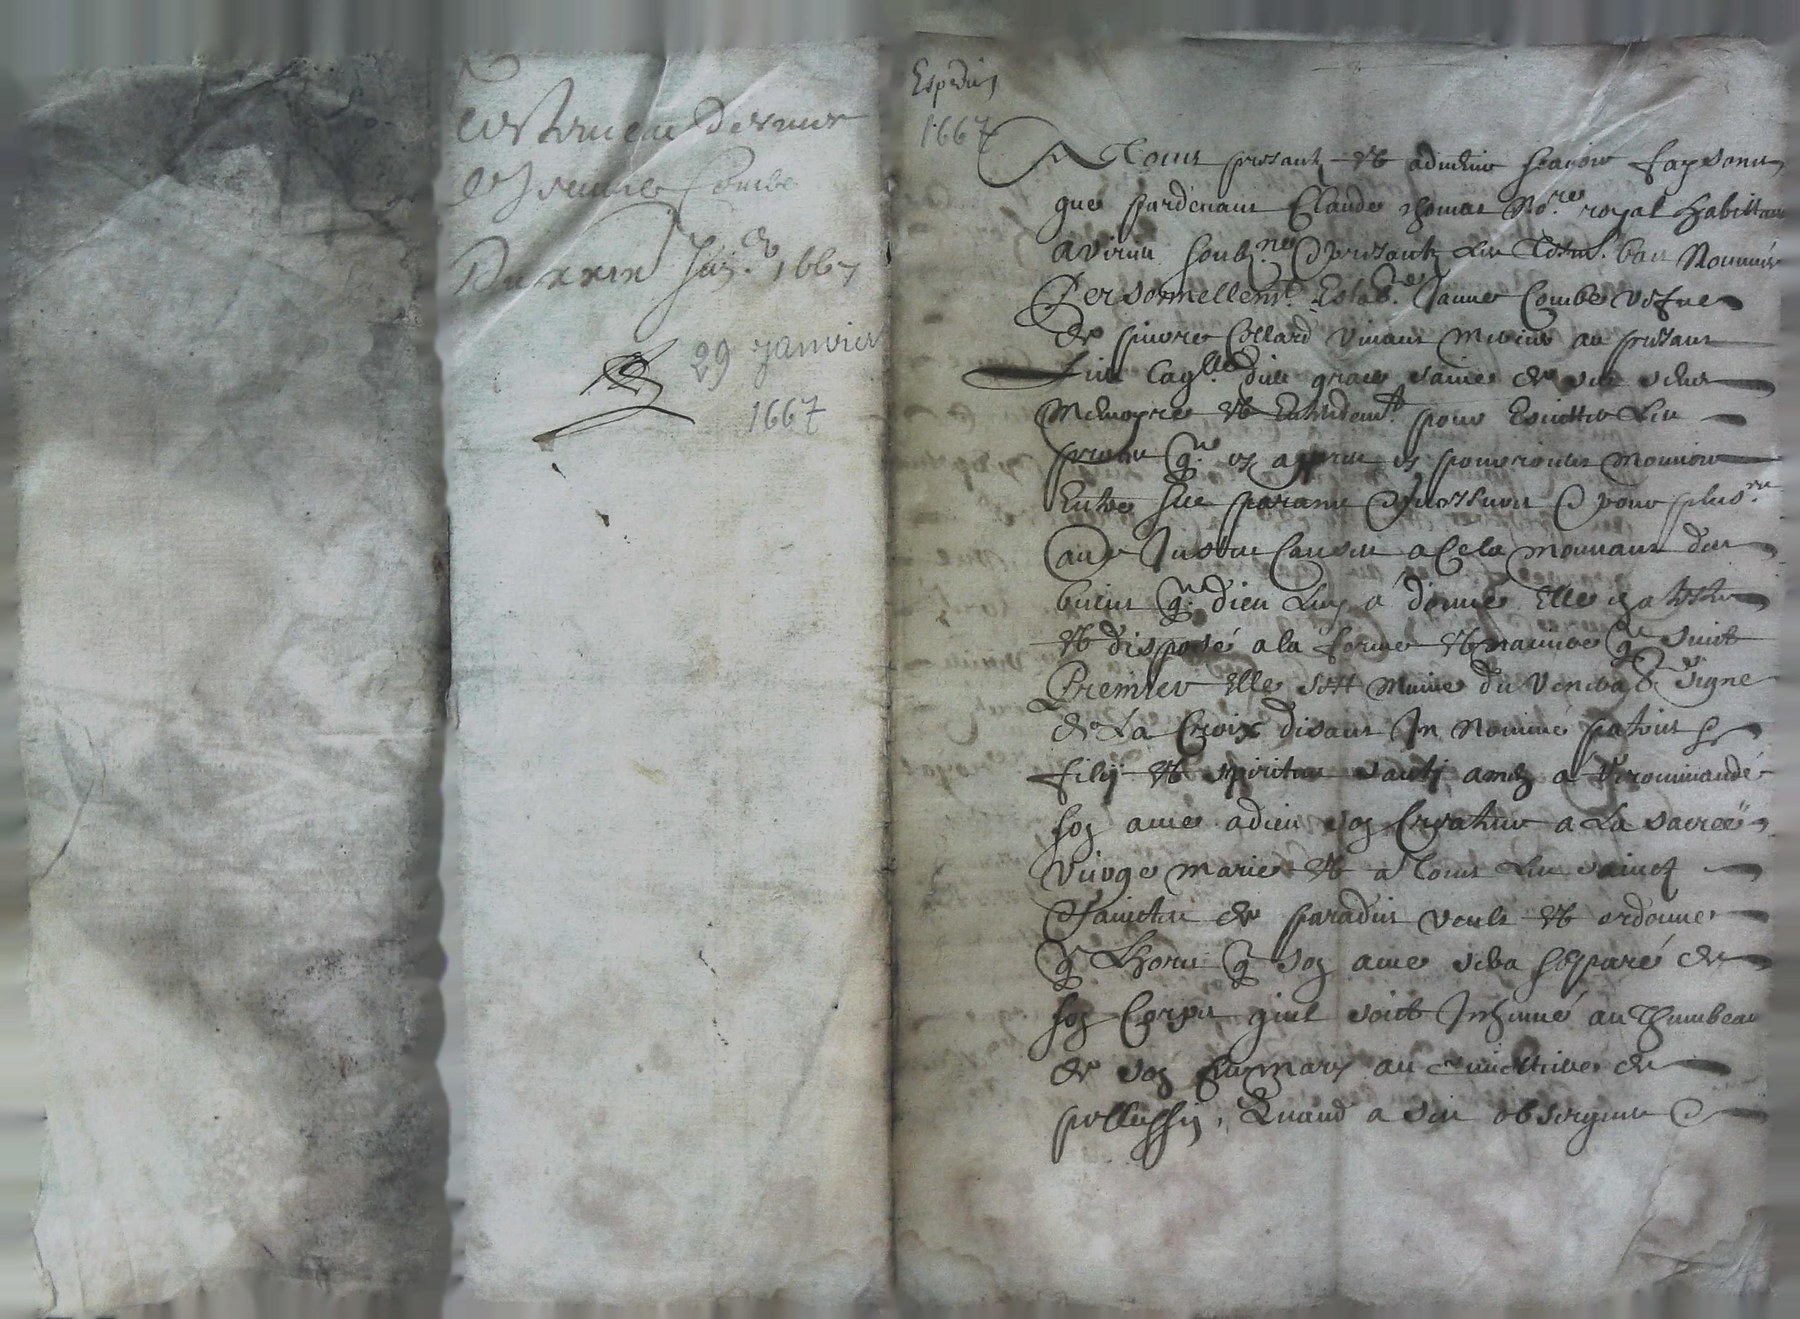 Testement de
de Jeanne Combe
Du xxix Janr 1667
29 janvier
1667
Expedié
1667
A Tous presant et advenir scavoir faysons
que pardevant Claude thomas No.re royal habittant
a virieu soub.né & presantz les tesm. bas Nommés
Personnellemt. Estab.e Janne Combe vefve
de pierre Collard vivant
dieu grace saine de ses sens
Memoyre et Entendemt. pour Esvitter les
proces q. apprez
Entre ses parans & pour plus.rs
au.es Justes Causes a Cela mouvant des
biens q. dieu Luy a donné Elle a testé
et disposé a la forme et maniere q. suict
Premier Elle sest Munie du venerab. signe
de La Croix disant In Nomine patris &
filij et spiritus santi amen a Recommandé
son ame a dieu son Createur a La sacrée
vierge marie et a Tous les sainctz
& sainctes de paradis veult et ordonne
q. Lhors q. son ame sera sepparé de
son Corps quil soict Inhumé au Thumbeau
de son feu mary au cimettiere de
pellussin, Quand a ses obseques &